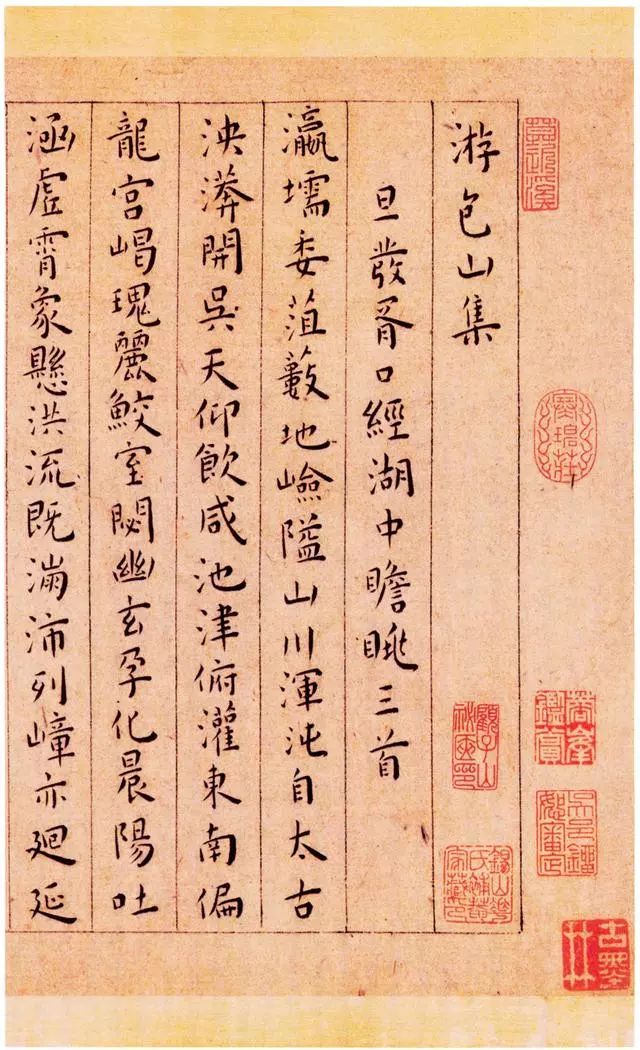 游包山集
旦發胥口經湖中瞻眺三首
瀛壖委菹藪地嶮隘山川渾沌自太古
泱漭開吳天仰飲咸池津俯灌東南偏
龍宮嵑瑰麗鮫室閟幽玄孕化晨陽吐
涵虛霄象懸洪流既滿沛列嶂亦廻延
蓉峯鑑賞
顧子山秘匧印